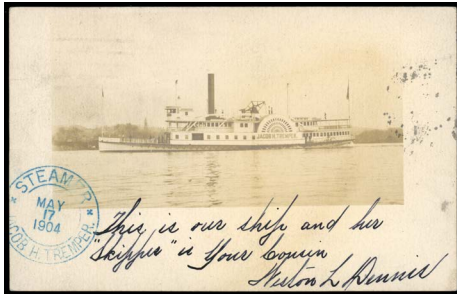 JACOB H. TREMPER
STEAMER
MAY
17
1904
JACOB H. TREMPER.
This is our ship and her
"Skipper" is Your Cousin
L Dennis